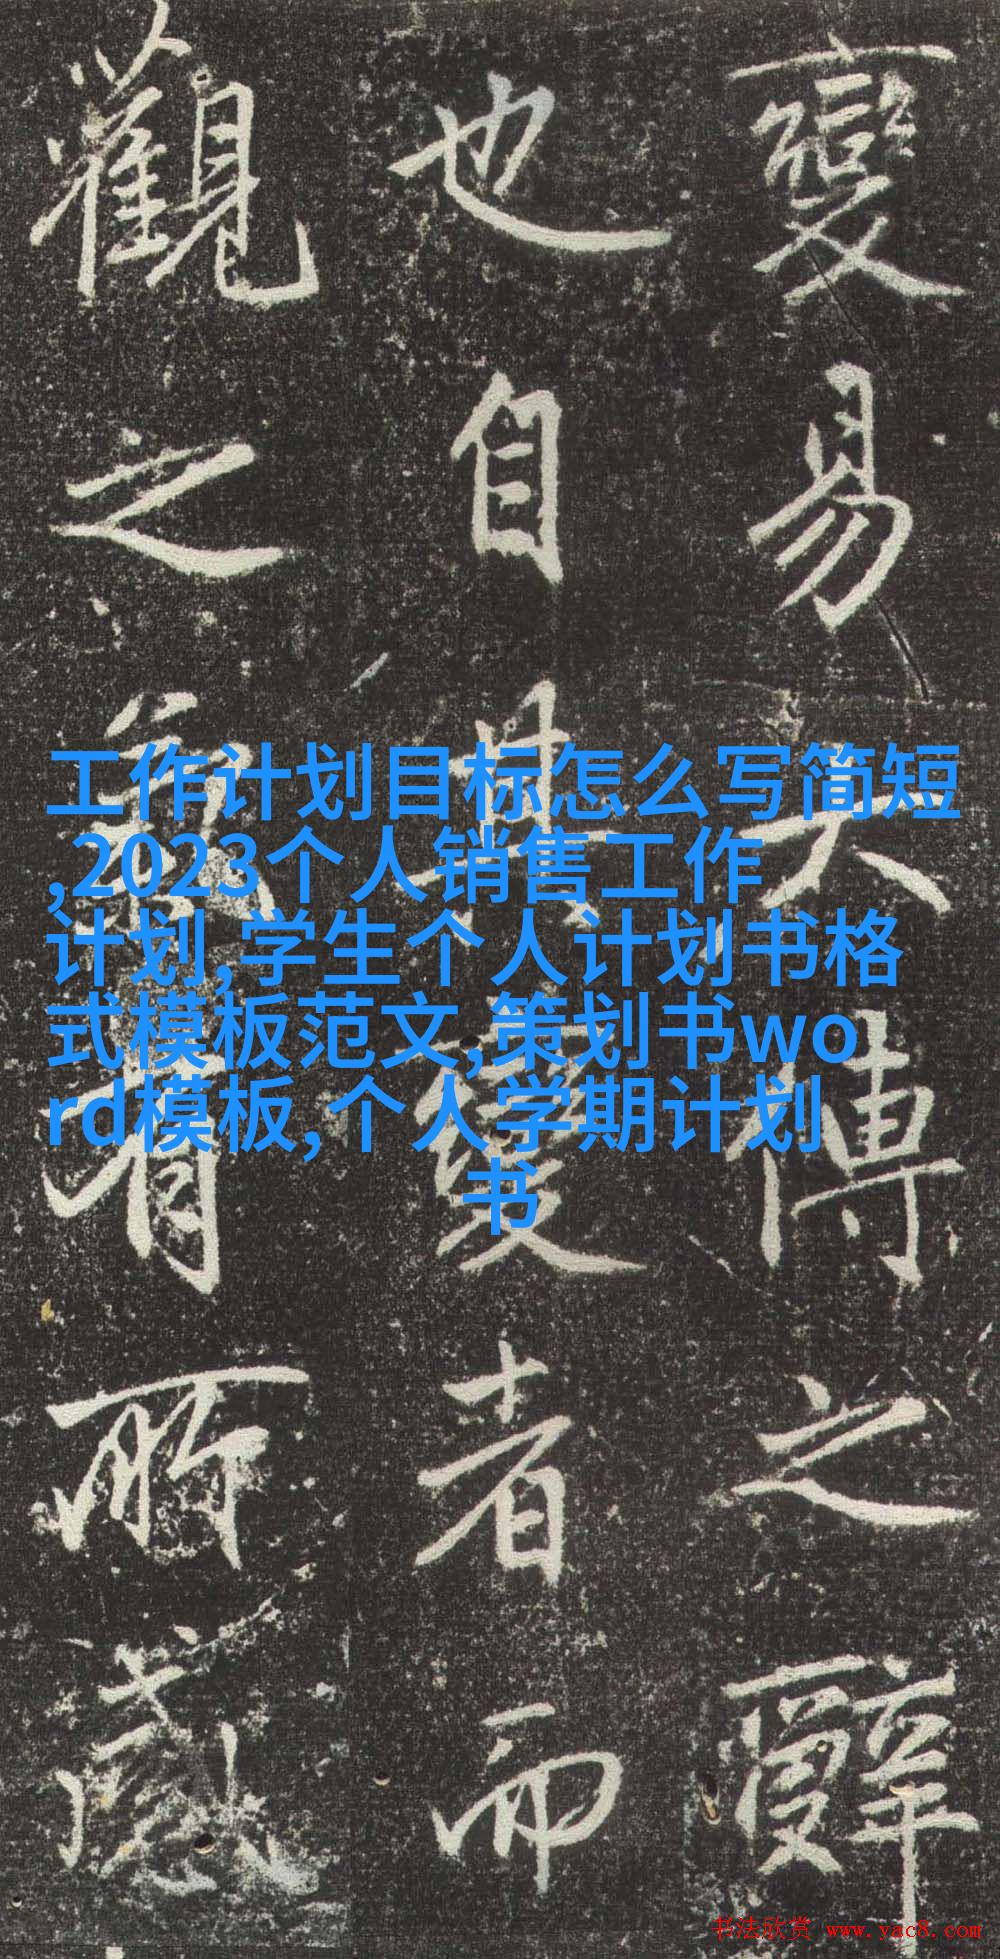 變易大傳之辭
也自其變者而
觀之有所感
工作计划目标怎么写简短
,2023个人销售工作
计划,学生个人计划书格
式模板范文,策划书wo
rd模板,个人学期计划
书
书法欣赏 www.yac8.com